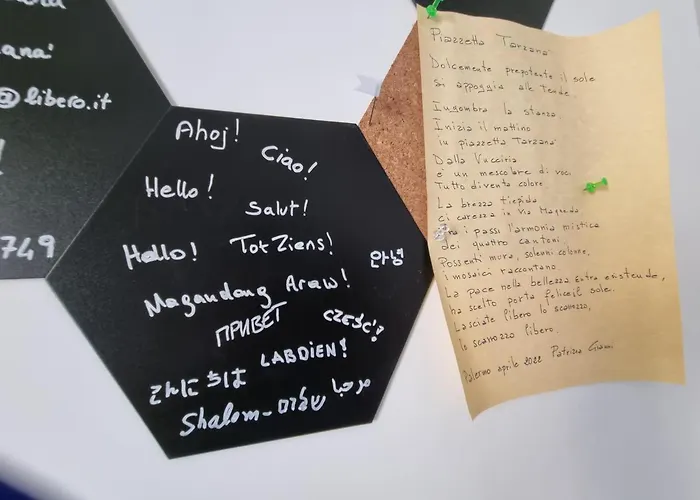 ana'
@libero.it
!
749
Ahoj!
Ciao!
Hello!
Salut!
Hallo!
Tot Ziens!
안녕
Magandang Araw!
ПРИВЕТ
CZEŚĆ?
LABDIEN!
こんにちは
مرحبا
Shalom - שלום
Piazzetta Tarzana'
Dolcemente prepotente il sole
si appoggia alle tende.
Ingombra la stanza.
Inizia il mattino
in piazzetta Tarzana'
Dalla Vucciria
e' un mescolare di voci.
Tutto diventa colore.
La brezza tiepida
ci carezza in via Maqueda
i passi l'armonia mistica
dei quattro cantoni.
Possenti mura, solenni colonne,
i mosaici raccontano.
La pace nella bellezza extra esistende,
ha scelto porta felice, il sole.
Lasciate libero lo scarrozzo,
lo scarrozzo libero.
Palermo aprile 2022 Patrizia